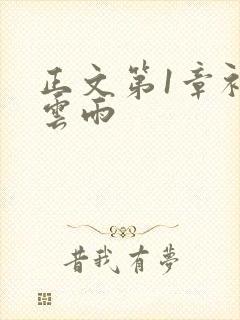 正文第1章初
雲雨
昔我有夢